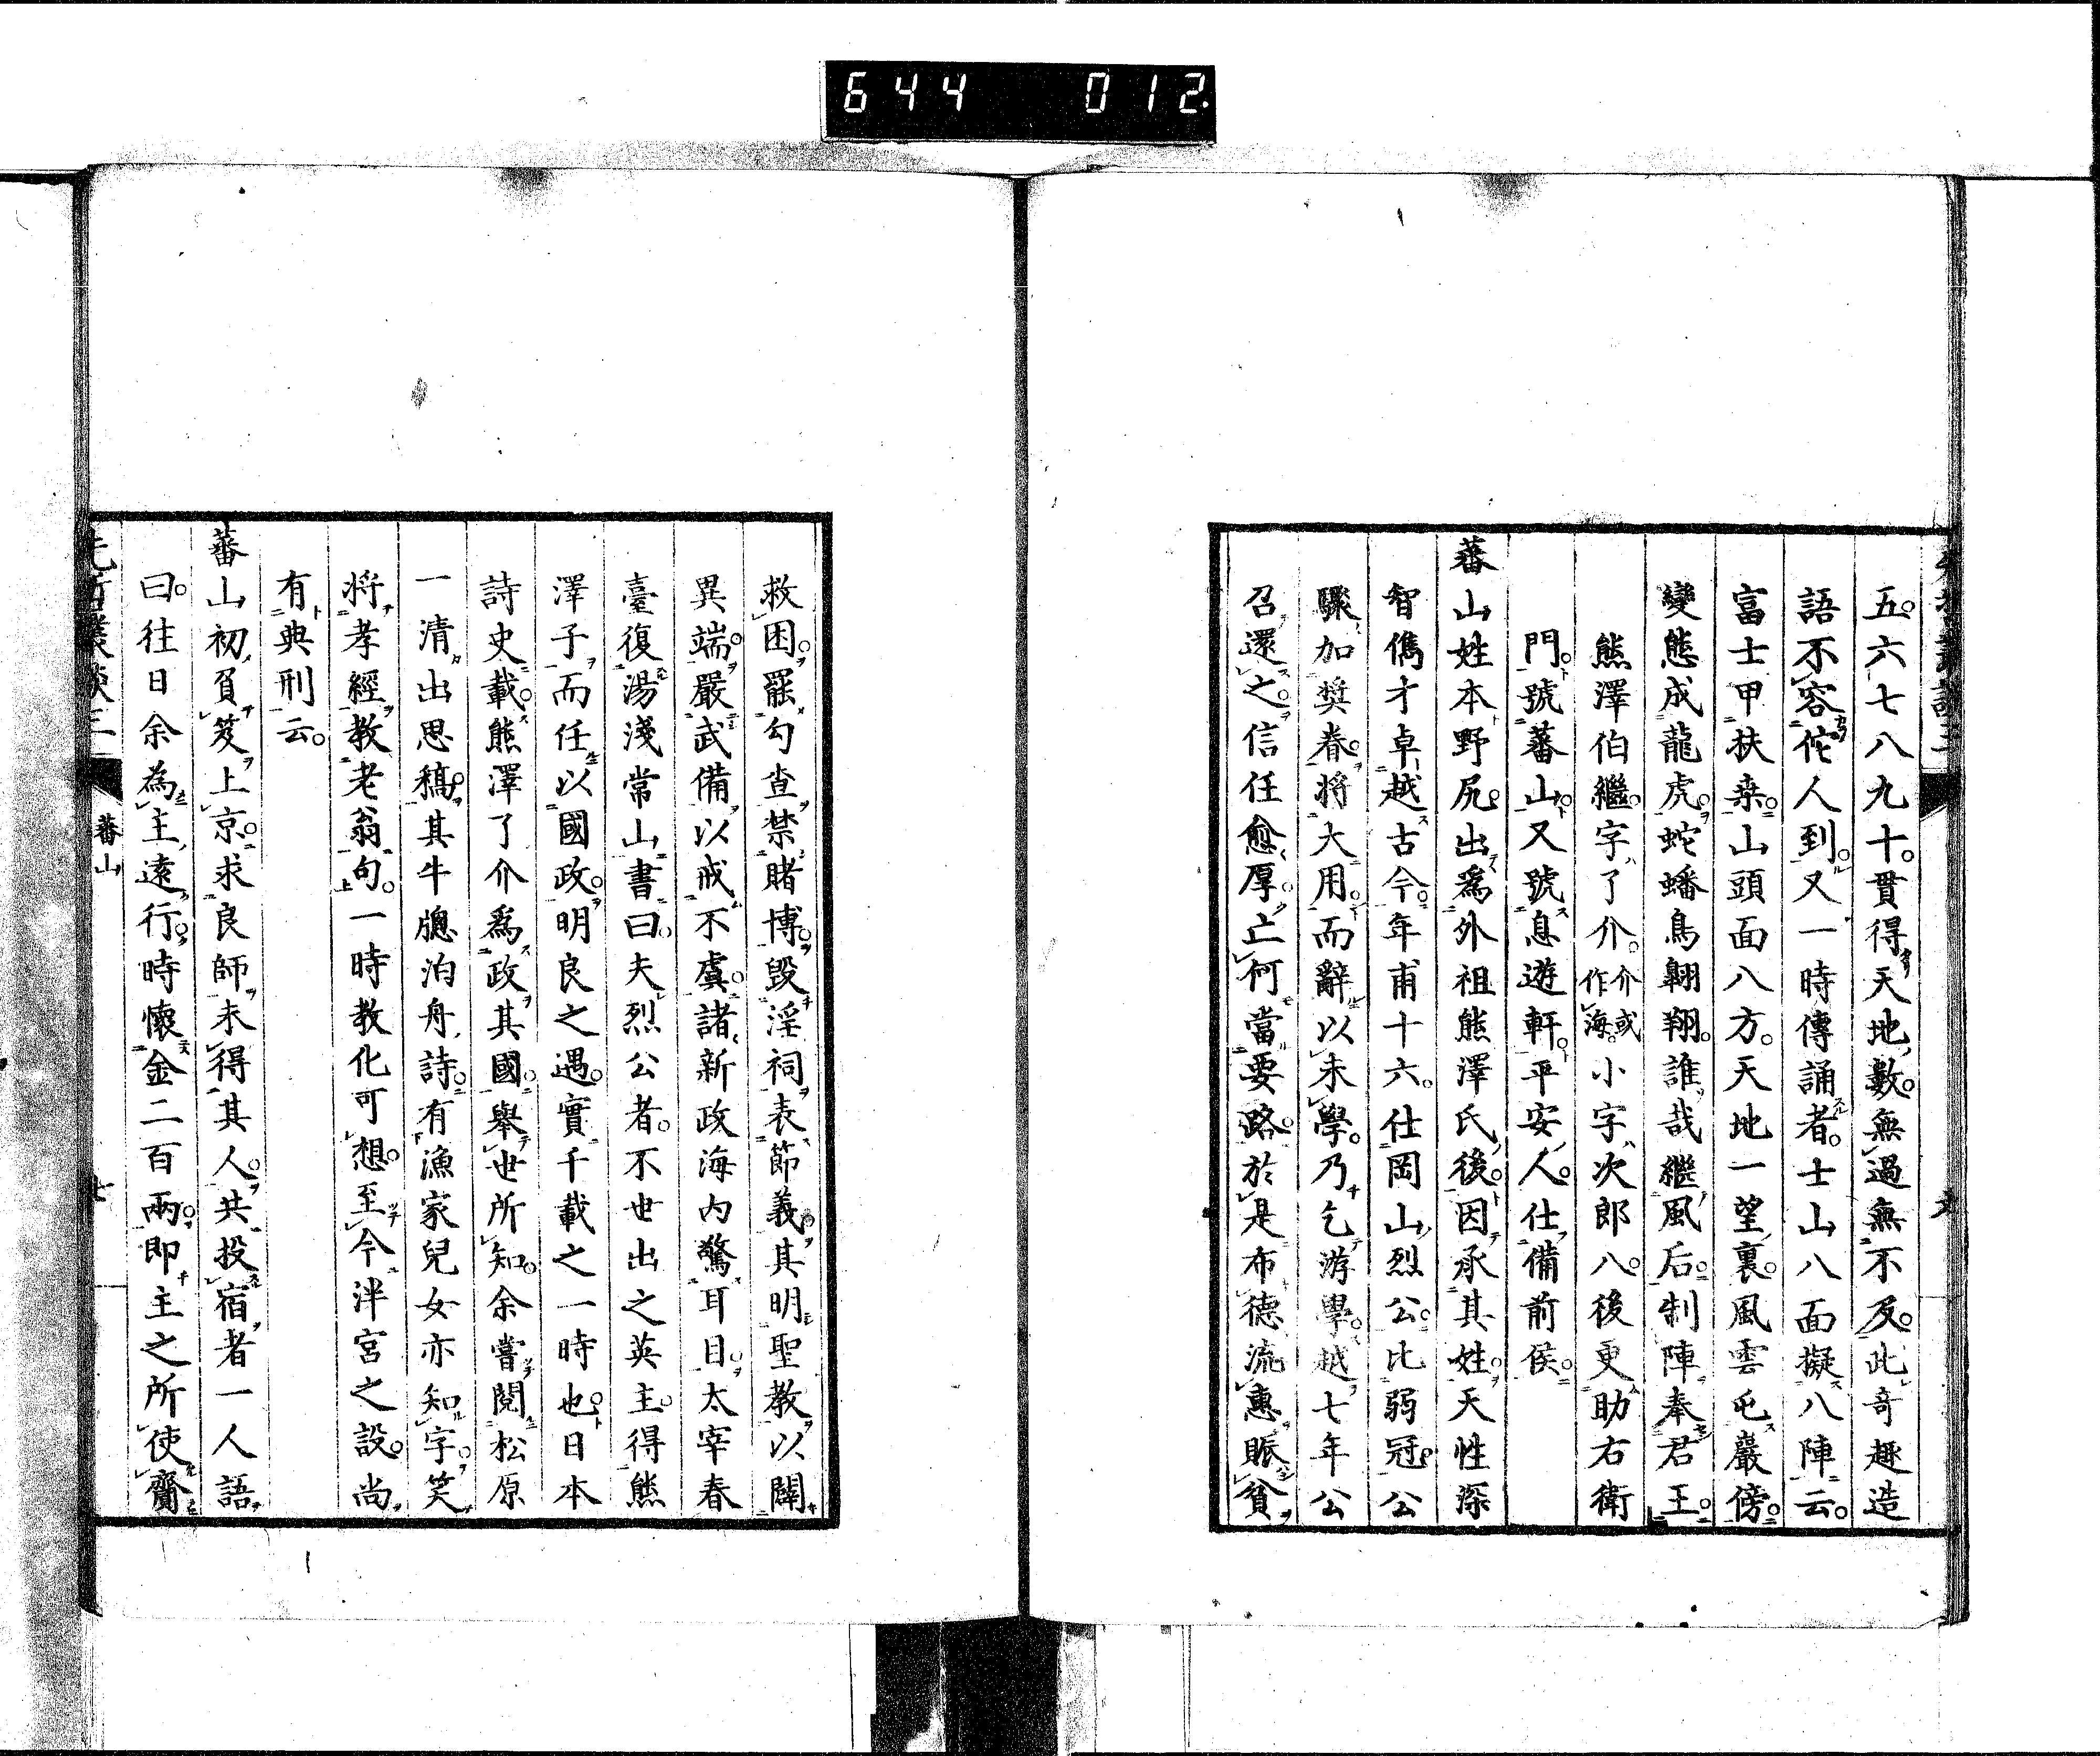 644 012
五六七八九十。貫得天地數。無過無不及。此奇趣造
語不容佗人到。又一時傳誦者。士山八面擬八陣云。
富士甲扶桒。山頭面八方。天地一望裏。風雲屯巖傍。
變態成龍虎。蛇蟠鳥翺翔。誰哉繼風后。制陣奉君王。
熊澤伯繼。字了介。介或作海。小字次郎八。後更助右衛
門。號蕃山。又號息遊軒。平安人。仕備前侯。
蕃山姓本野尻。出爲外祖熊澤氏後。因承其姓。天性深
智儁才卓越古今。年甫十六。仕岡山烈公。比弱冠。公
驟加奨眷。將大用。而辭以未學。乃乞游學。越七年公
召還之。信任愈厚。亡何當要路。於是布德流惠。賑貧
救困。罷勾查禁賭博。毀淫祠。表節義。其明聖教以闢
異端。嚴武備以戒不虞。諸新政海內驚耳目。太宰春
臺復湯淺常山書曰。夫烈公者。不世出之英主。得熊
澤子而任以國政。明良之遇。實千載之一時也。日本
詩史載。熊澤了介爲政其國。舉世所知。余嘗閱松原
一清出思稿。其牛窻泊舟詩。有漁家兒女亦知字。笑
將孝經教老翁句。一時教化可想。至今泮宮之設。尚
有典刑云。
蕃山初負笈上京。求良師未得其人。共投宿者一人語
曰。往日余為主遠行。時懷金二百兩。即主之所使齎
先哲叢談三
蕃山
七